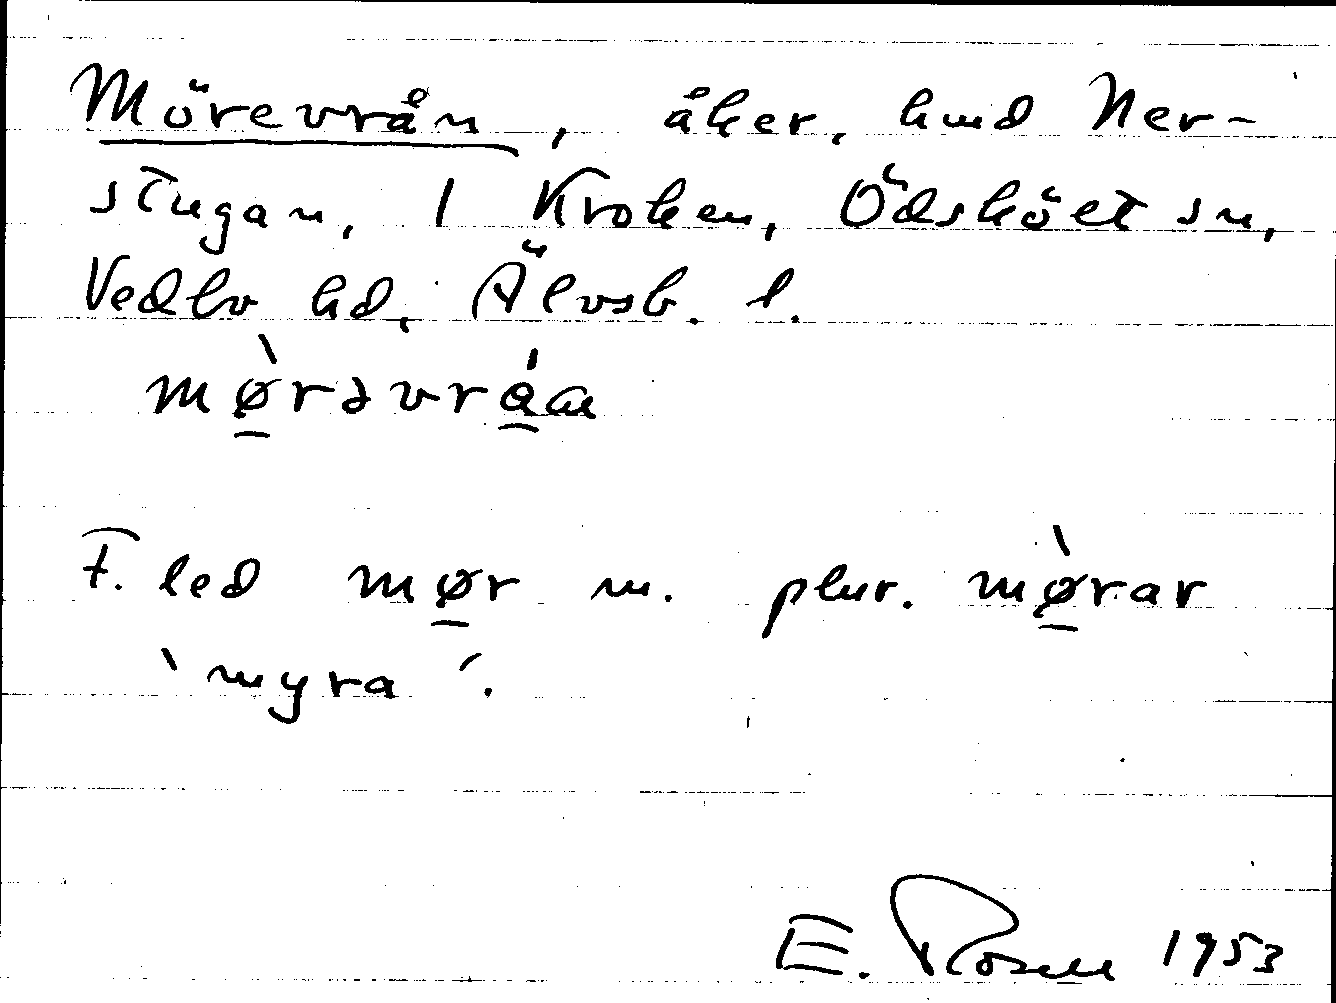 Mörevrån, åker, hmd Ner-
stugan, 1 Kroken, Ödsköet sn,
Vedbo hd, Älvsb. l.
mø̱̀rəvrá̱a
F. led mø̱r m. plur. mø̱̀rar
`myra´.
E. Rosell 1953